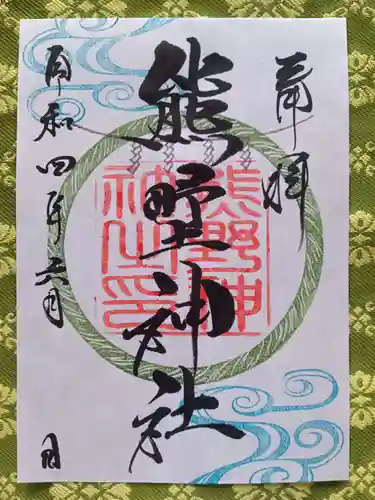 奉拝
熊野神社
熊野神
社之印
令和四年六月
日